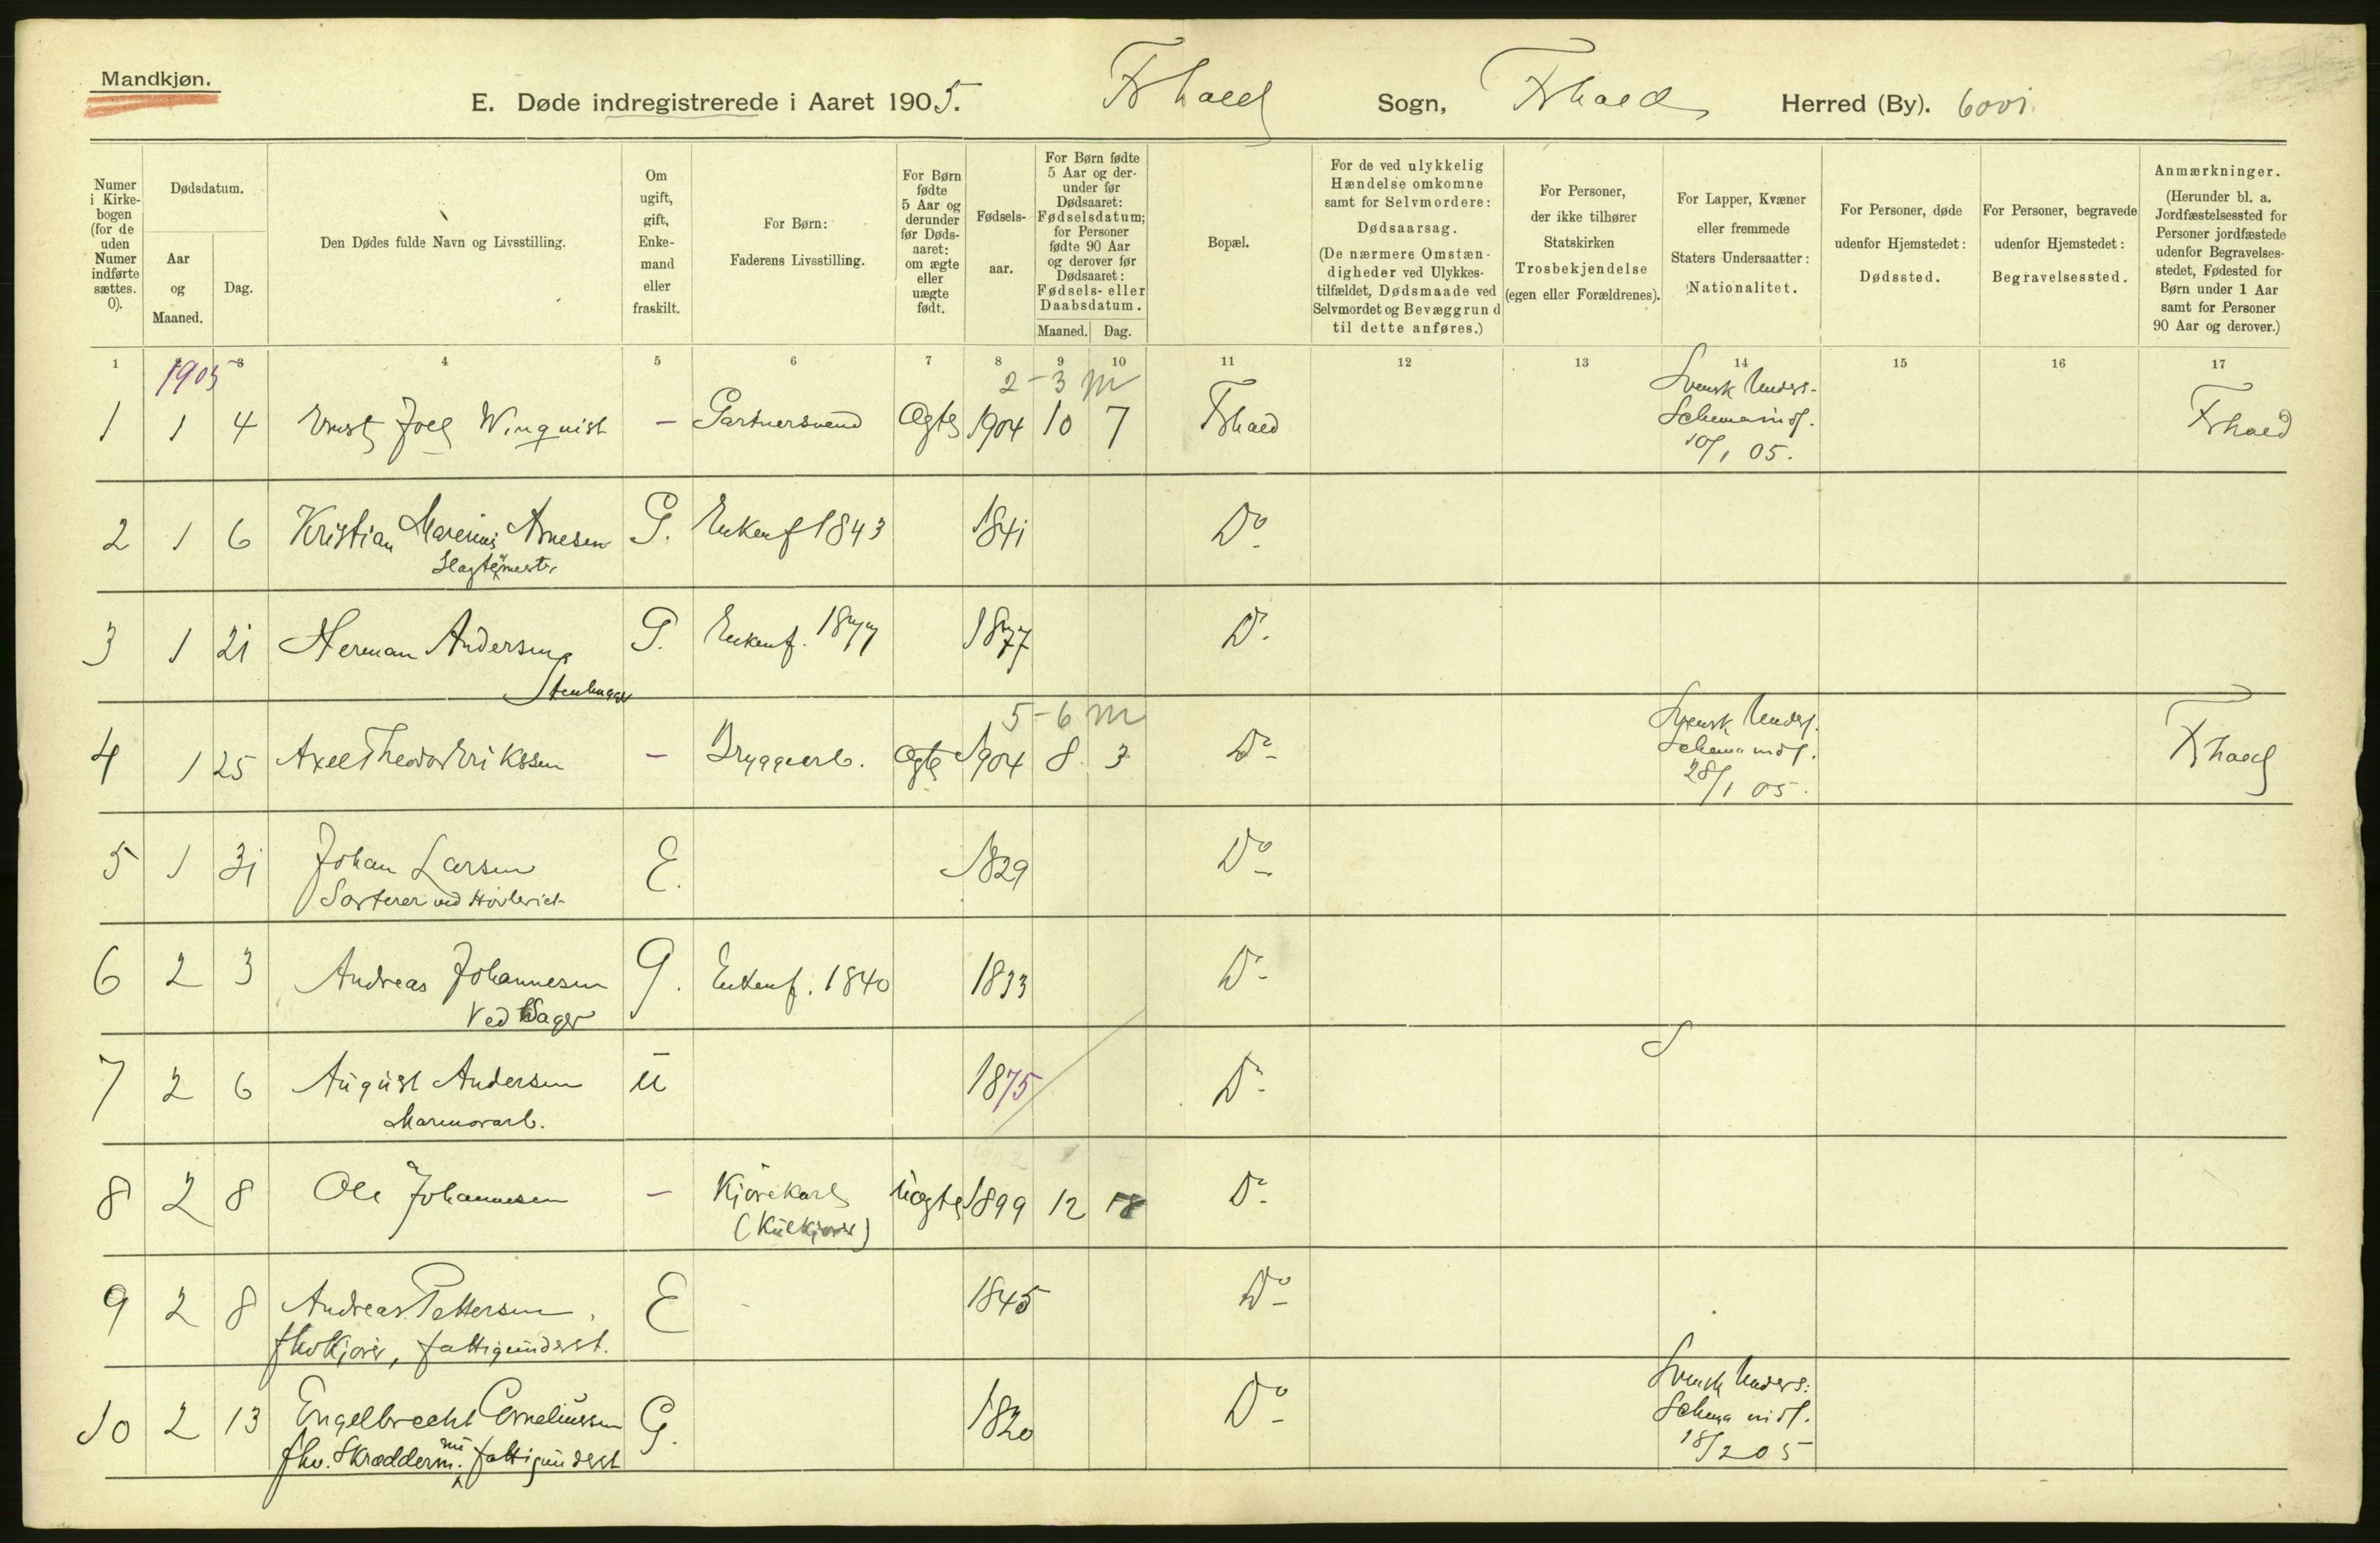 Mandkjøn.
E. Døde indregistrerede i Aaret 1905. Frhald Sogn, Frhald Herred (By).
Numer i Kirkebogen (for de uden Numer indførte sættes. 0).
Dødsdatum.
Aar og Maaned.
Dag.
Den Dødes fulde Navn og Livsstilling.
Om ugift, gift, Enkemand eller fraskilt.
For Børn: Faderens Livsstilling.
For Børn fødte 5 Aar og derunder før Dødsaaret: om ægte eller uægte født.
Fødselsaar.
For Børn fødte 5 Aar og derunder før Dødsaaret: Fødselsdatum; for Personer fødte 90 Aar og derover før Dødsaaret: Fødsels- eller Daabsdatum.
Maaned. Dag.
Bopæl.
For de ved ulykkelig Hændelse omkomne samt for Selvmordere: Dødsaarsag. (De nærmere Omstændigheder ved Ulykkestilfældet, Dødsmaade ved Selvmordet og Bevæggrund til dette anføres.)
For Personer, der ikke tilhører Statskirken Trosbekjendelse (egen eller Forældrenes).
For Lapper, Kvæner eller fremmede Staters Undersaatter: Nationalitet.
For Personer, døde udenfor Hjemstedet: Dødssted.
For Personer, begravede udenfor Hjemstedet: Begravelsessted.
Anmærkninger. (Herunder bl. a. Jordfæstelsessted for Personer jordfæstede udenfor Begravelsesstedet, Fødested for Børn under 1 Aar samt for Personer 90 Aar og derover.)
1 3 4 5 6 7 8 9 10 11 12 13 14 15 16 17
1905
2-3 m
Svensk Unders.
1 1 4 Ernst Joel Winquist – Gartnersvend Ægte 1904 10 7 Frhald Schema inds. Frhald
10/1 05.
2 1 6 Kristian Marenius Arnesen G. Enke nf 1843 1841 Do
Slagtermester
3 1 21 Herman Andersen G. Enke nf. 1877 1877 Do
Stenhugger
5-6 m
Svensk Unders.
4 1 25 Axel Theodor Erikssen – Bryggeriarb. Ægte 1904 8 3 Do Schema inds. Frhald
28/1 05.
5 1 31 Johan Larsen E. 1829 Do
Sorterer ved Høvleriet
6 2 3 Andreas Johannesen G. Enke nf. 1840 1833 Do
Vedsager
7 2 6 August Andersen U 1875 Do
Marmorarb.
8 2 8 Ole Johannesen – Kjørekarl Uægte 1899 12 18 Do
(Kulkjører)
9 2 8 Andreas Pettersen E 1845 Do
fhv Kjører, fattigunderst.
Svensk Unders.
10 2 13 Engelbrecht Corneliussen G. 1820 Do Schema inds.
fhv. Skræderm. nu fattigunderst 18/2 05